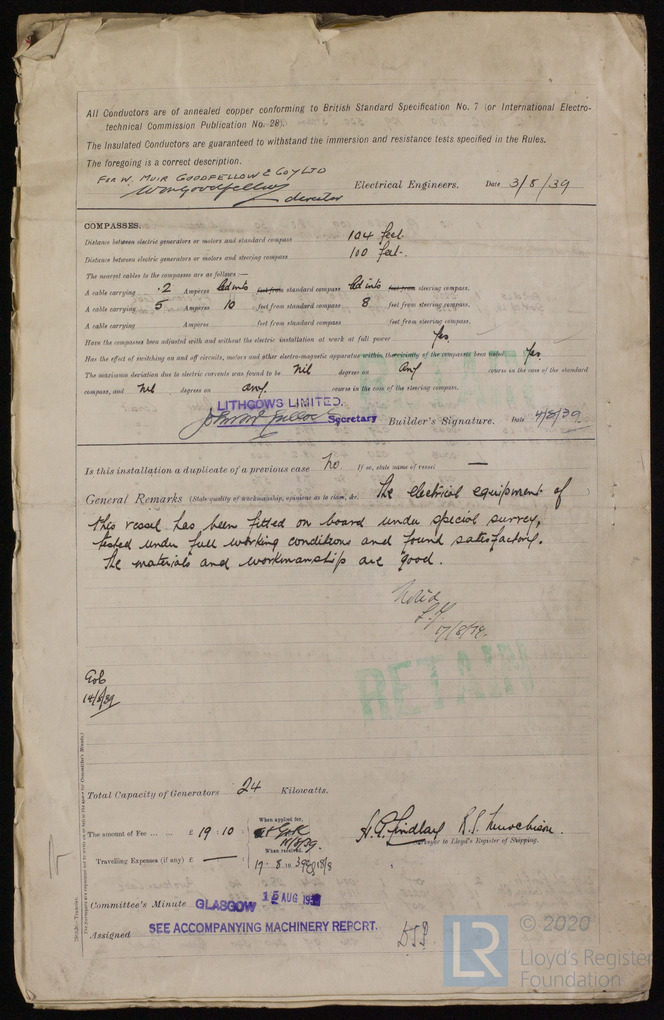 All Conductors are of annealed copper conforming to British Standard Specification No. 7 (or International Electro-
technical Commission Publication No. 28).
The Insulated Conductors are guaranteed to withstand the immersion and resistance tests specified in the Rules.
The foregoing is a correct description.
FOR W. MUIR GOODFELLOW & COY LTD
WmGoodfellow director Electrical Engineers. Date 3/8/39
COMPASSES.
Distance between electric generators or motors and standard compass 104 feet.
Distance between electric generators or motors and steering compass 100 feet.
The nearest cables to the compasses are as follows:—
A cable carrying .2 Ampères led into feet from standard compass led into feet from steering compass.
A cable carrying 5 Ampères 10 feet from standard compass 8 feet from steering compass.
A cable carrying Ampères feet from standard compass feet from steering compass.
Have the compasses been adjusted with and without the electric installation at work at full power Yes.
Has the effect of switching on and off circuits, motors and other electro-magnetic apparatus within the vicinity of the compasses been noted Yes.
The maximum deviation due to electric currents was found to be Nil degrees on any course in the case of the standard
compass, and Nil degrees on any course in the case of the steering compass.
LITHGOWS LIMITED.
Secretary Builder's Signature. Date 4/8/39
Is this installation a duplicate of a previous case No. If so, state name of vessel —
General Remarks (State quality of workmanship, opinions as to class, &c. The electrical equipment of
this vessel has been fitted on board under special survey,
tested under full working conditions and found satisfactory.
The materials and workmanship are good.
Noted
17/8/39.
RETAIN
RETAIN
14/8/39
Total Capacity of Generators 24 Kilowatts.
The amount of Fee ... ... £ 19 : 10 : When applied for,
When received,
Travelling Expenses (if any) £ — : 17. 8. 19 39
H. G. Findlay R. S. Murchison.
Surveyor to Lloyd's Register of Shipping.
Committee's Minute GLASGOW 15 AUG 1939
Assigned SEE ACCOMPANYING MACHINERY REPORT.
© 2020
LR
Lloyd's Register
Foundation